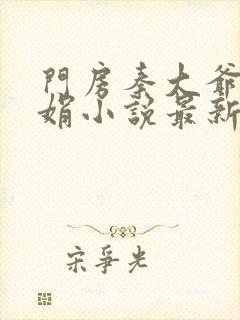 門房秦大爺
娟小說最新
宋爭光